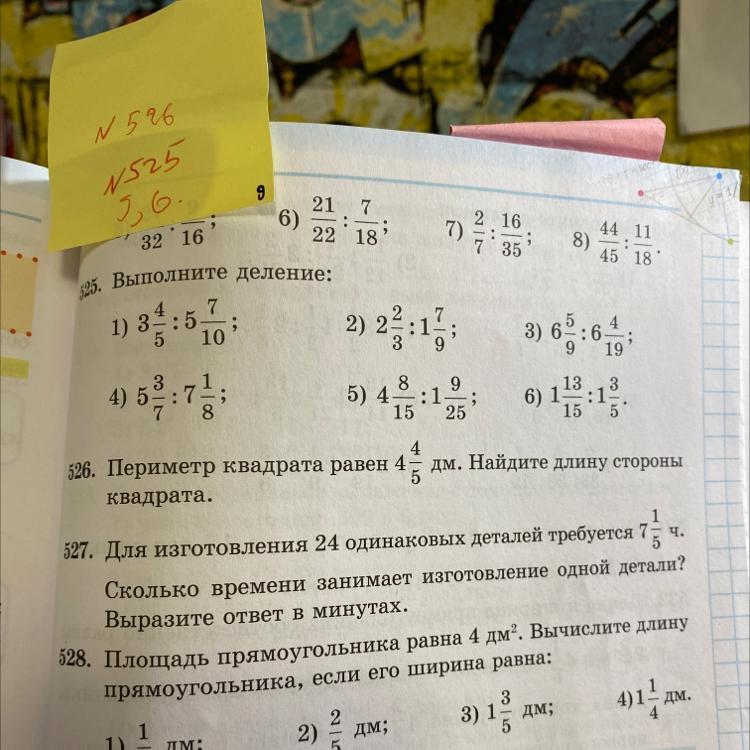 N 526
N525
5, 6.
9
32 16 ; 6) 21/22 : 7/18 ; 7) 2/7 : 16/35 ; 8) 44/45 : 11/18 .
525. Выполните деление:
1) 3 4/5 : 5 7/10 ; 2) 2 2/3 : 1 7/9 ; 3) 6 5/9 : 6 4/19 ;
4) 5 3/7 : 7 1/8 ; 5) 4 8/15 : 1 9/25 ; 6) 1 13/15 : 1 3/5 .
526. Периметр квадрата равен 4 4/5 дм. Найдите длину стороны
квадрата.
527. Для изготовления 24 одинаковых деталей требуется 7 1/5 ч.
Сколько времени занимает изготовление одной детали?
Выразите ответ в минутах.
528. Площадь прямоугольника равна 4 дм². Вычислите длину
прямоугольника, если его ширина равна:
1) 1 дм; 2) 2/5 дм; 3) 1 3/5 дм; 4) 1 1/4 дм.